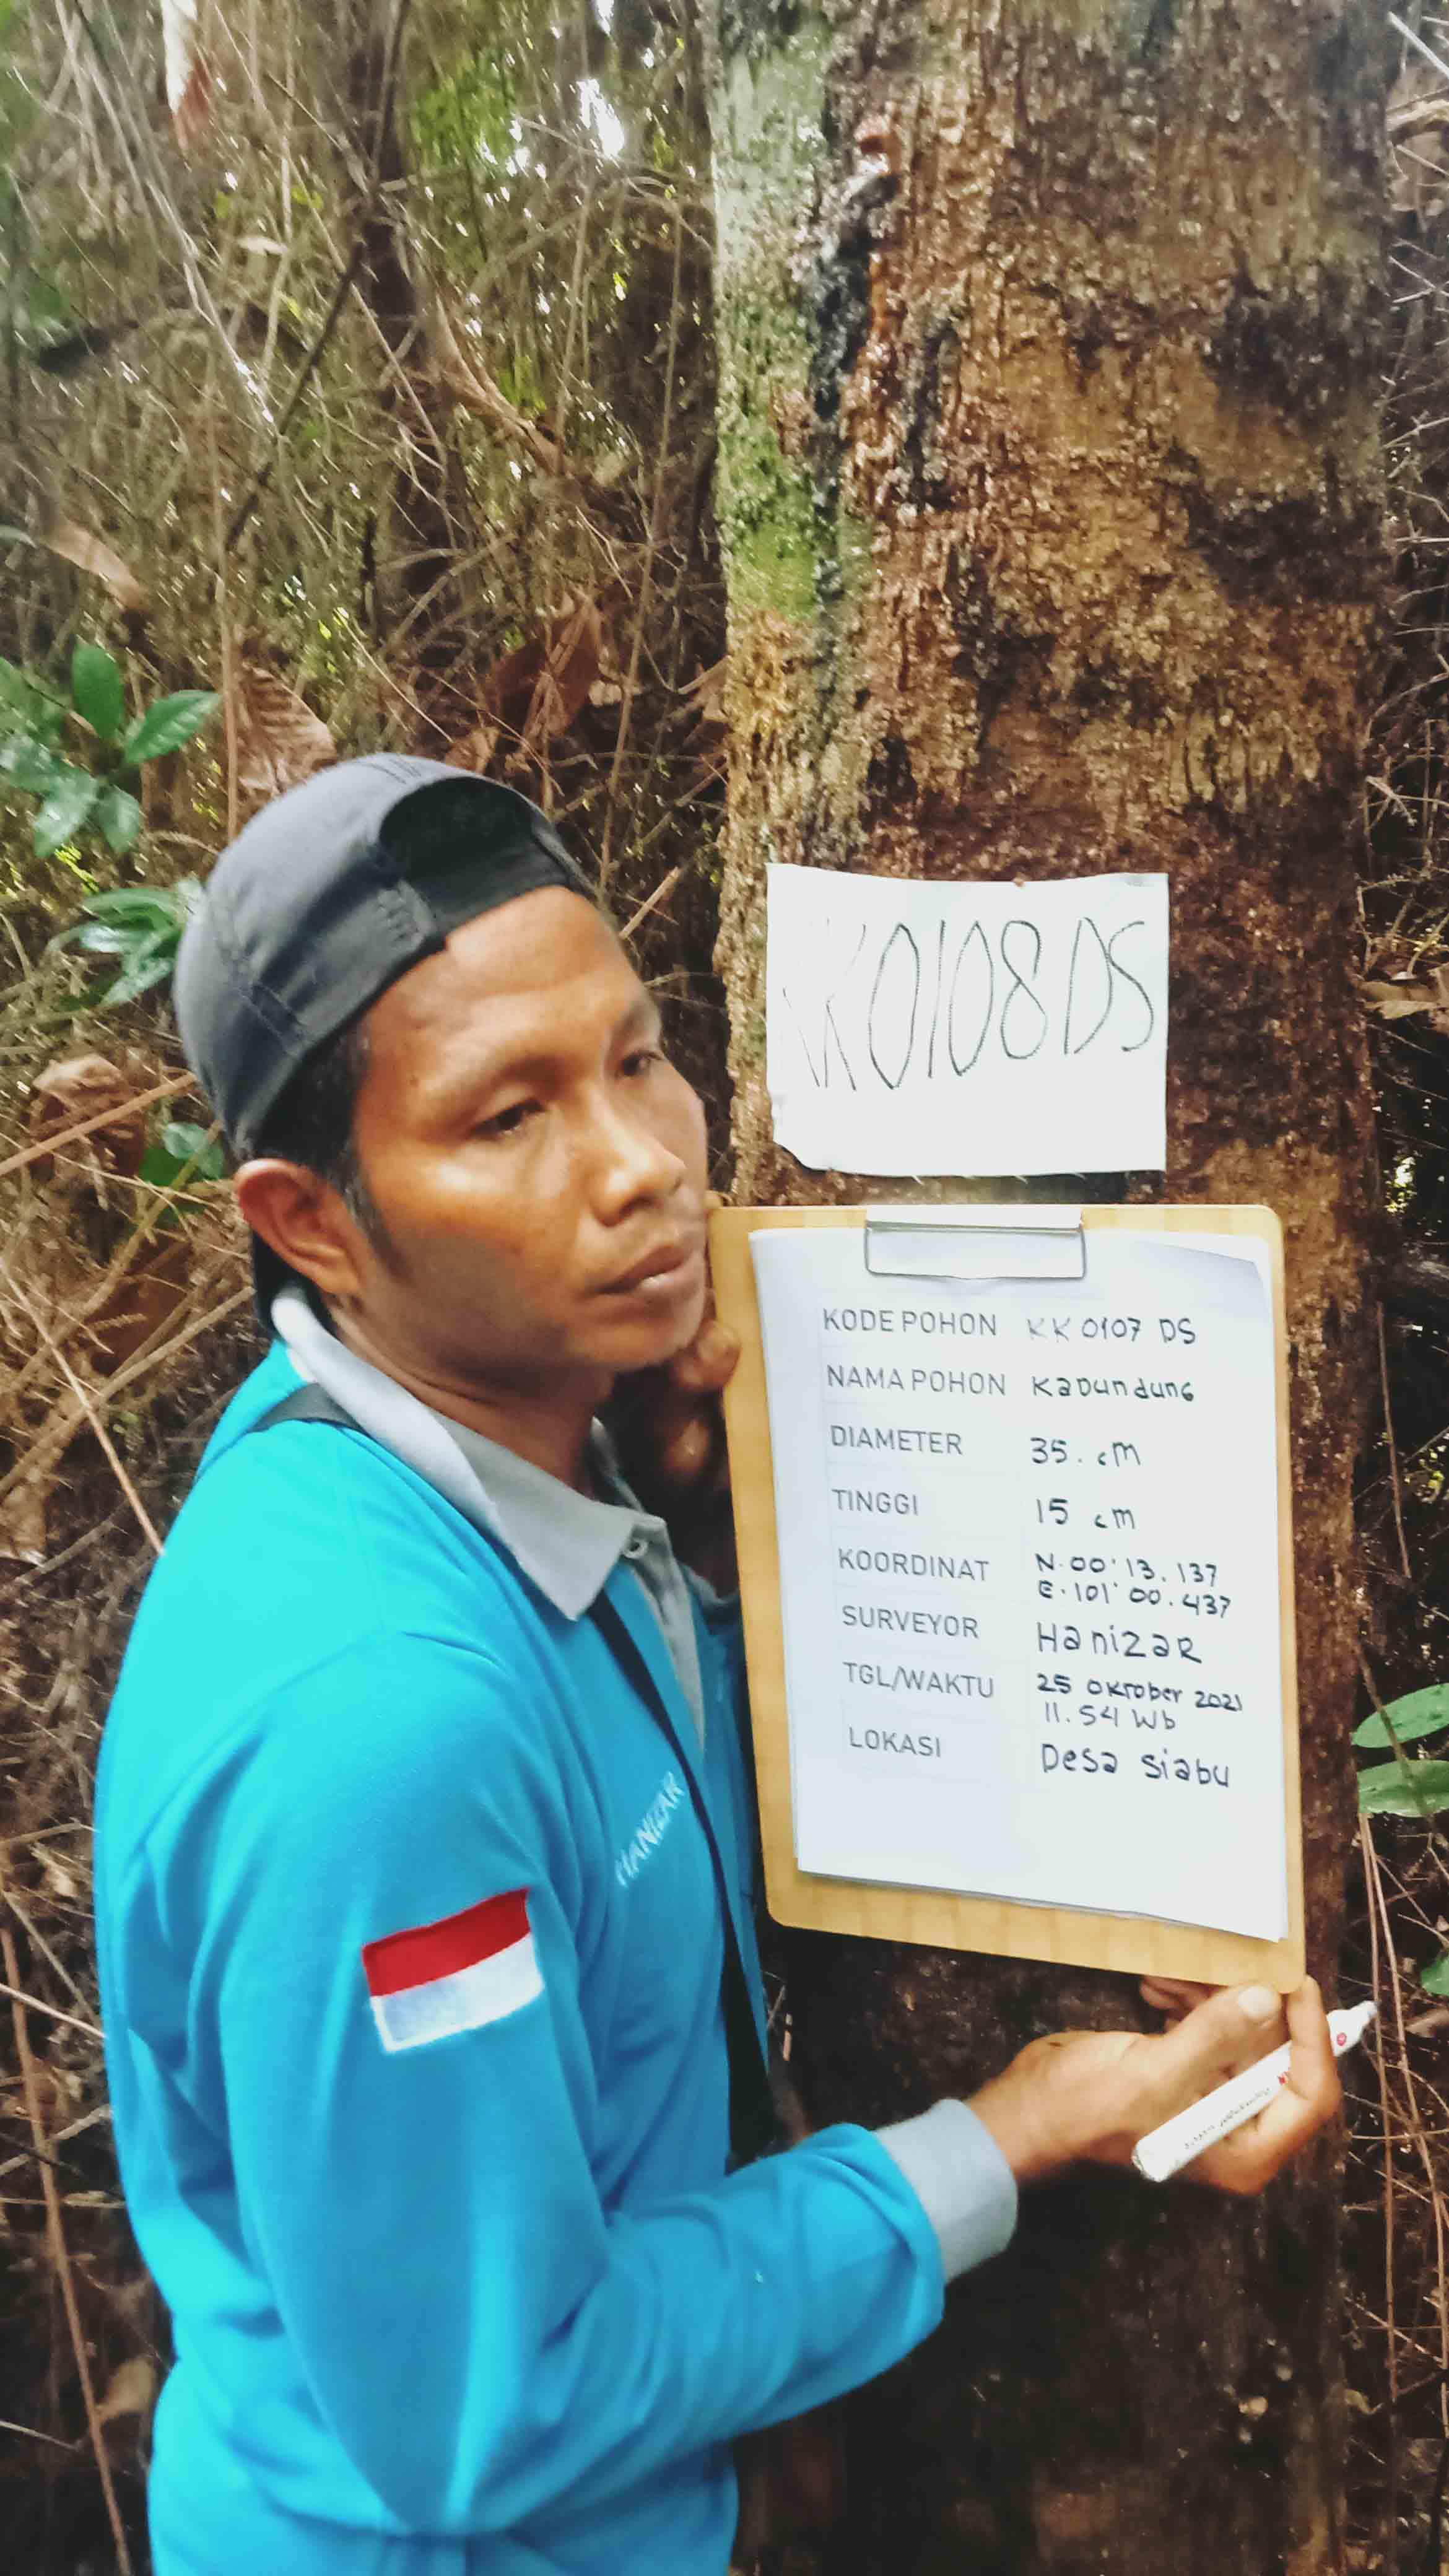 KK0108DS
KODE POHON KK0107 DS
NAMA POHON Kadundung
DIAMETER 35. cm
TINGGI 15 cm
KOORDINAT N.00'13.137
E.101'00.437
SURVEYOR HanizaR
TGL/WAKTU 25 Oktober 2021
11.54 Wb
LOKASI Desa Siabu
HANIZAR